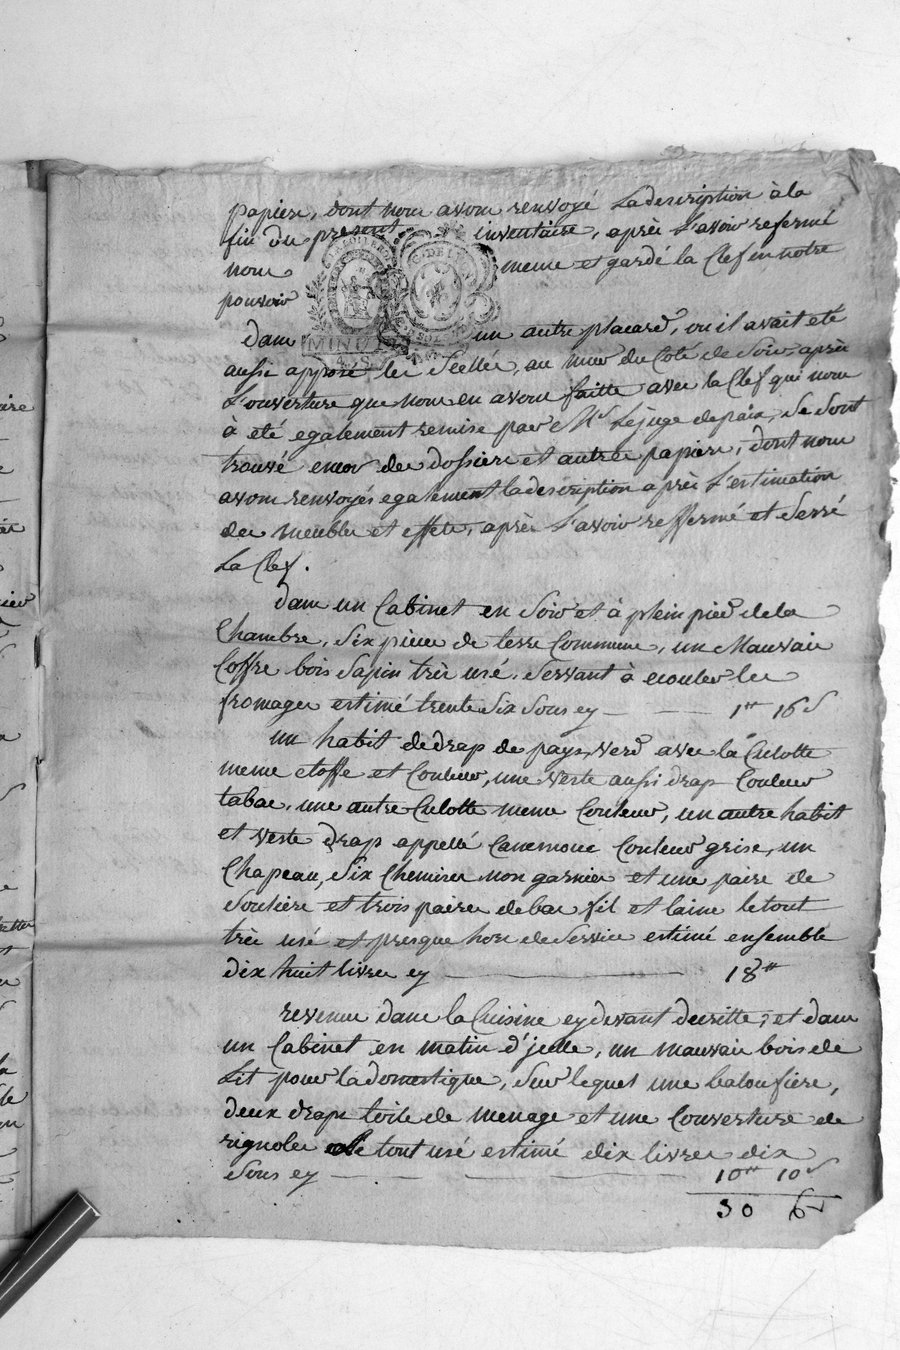 papiers, dont nous avons renvoyé la description à la
fin du présent inventaire, après l'avoir refermé
nous meme et gardé la Clef en notre
pouvoir
MINUTE
Dans un autre placard, ou il avait eté
aussi apposé les Scellés, au mur du Coté de Soir, après
l'ouverture que nous en avons faitte avec la Clef qui nous
a eté egalement remise par le Juge de paix, Se Sont
trouvé encor des dossiers et autres papiers, dont nous
avons renvoyés egalement la description après l'estimation
des meubles et effets, après l'avoir reffermé et Serré
la Clef.
dans un Cabinet en Soir et à plein pied de la
Chambre, Six pieces de terre Commune, un Mauvais
Coffre bois Sapin très usé. Servant à ecouler les
fromages estimé trente Six Sous cy 1 tt 16 s
un habit de drap de pays, verd avec la Culotte
meme etoffe et Couleur, une veste aussi drap Couleur
tabac, une autre Culotte meme Couleur, un autre habit
et veste drap appellé Couleur grise, un
Chapeau, Six Chemises non garnies et une paire de
Souliers et trois paires de bas fil et laine le tout
très usé et presque hors de Service estimé ensemble
dix huit livres cy 18 tt
revenus dans la Cuisine cy devant decritte, et dans
un Cabinet en matin d'icelle, un mauvais bois de
Lit pour la domestique, Sur lequel une baloufiere,
deux draps toile de menage et une Couverture de
rignoles le tout usé estimé dix livres dix
Sous cy 10 tt 10 s
30 6 s